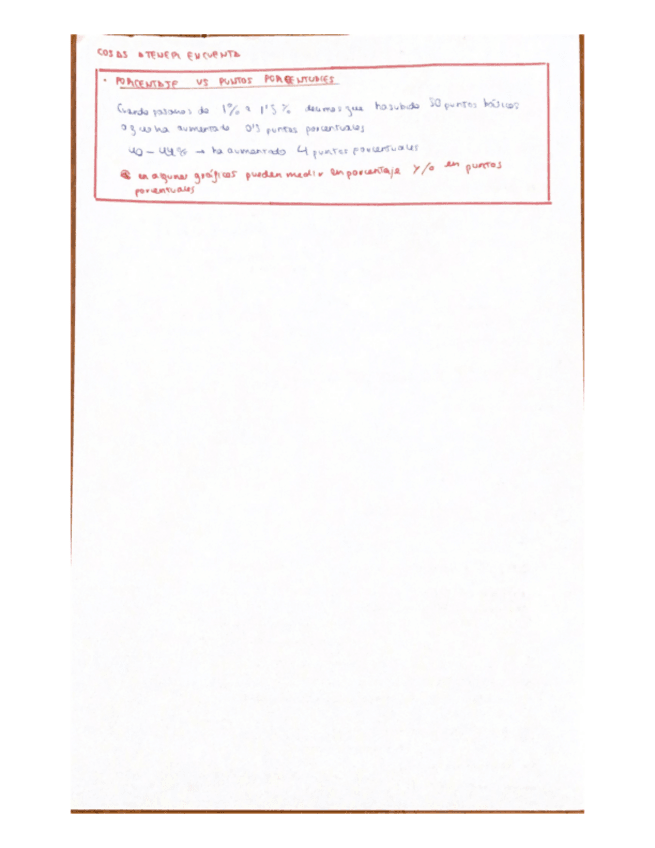 COSAS A TENER EN CUENTA
· PORCENTAJE VS PUNTOS PORCENTUALES
Cuando pasamos de 1% a 1'5% decimos que ha subido 50 puntos básicos
o que ha aumentado 0'5 puntos porcentuales
40 – 44% → ha aumentado 4 puntos porcentuales
en algunas gráficas pueden medir en porcentaje y/o en puntos
porcentuales